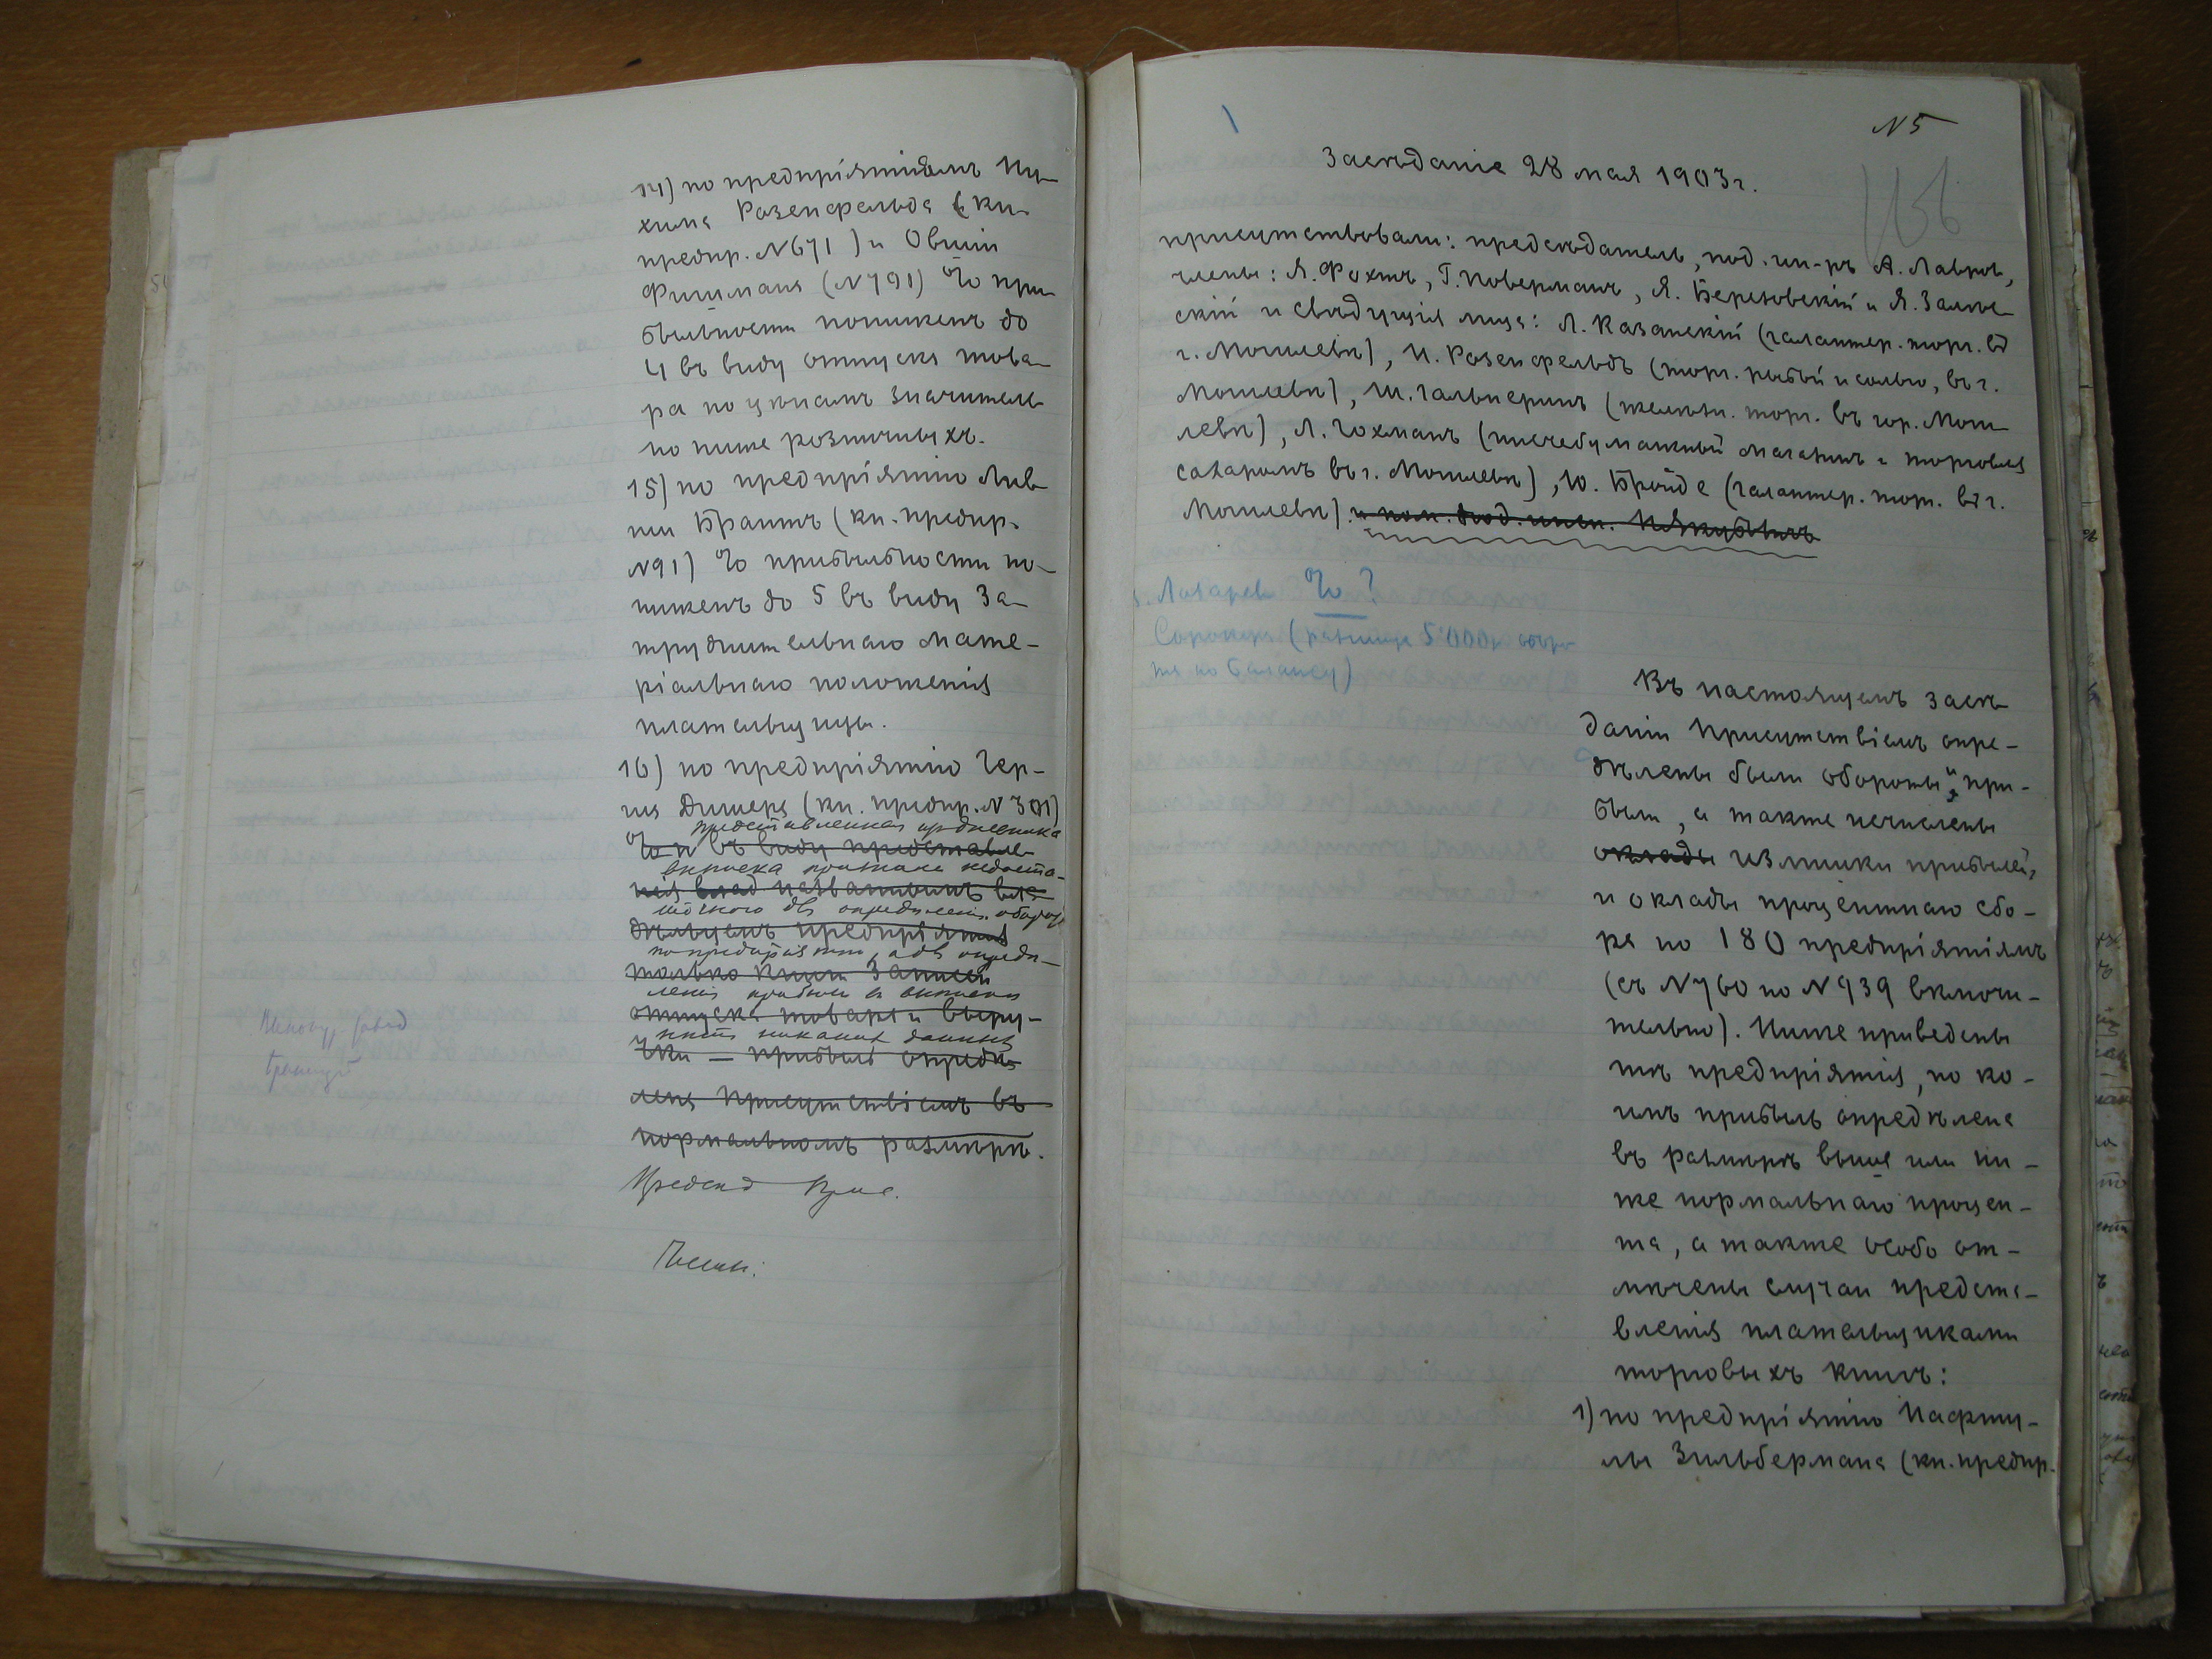 14) по предпріятіямъ Ну-
хима Розенфельда (кн.
предпр. №671) и Овшіи
Фишмана (№791) % при-
быльности пониженъ до
4 въ виду отпуска това-
ра по цѣнамъ значитель-
но ниже розничныхъ.
15) по предпріятію Лив-
ши Брантъ (кн. предпр.
№91) % прибыльности по-
ниженъ до 5 въ виду за-
труднительнаго мате-
ріальнаго положенія
плательщицы.
16) по предпріятію Гер-
ша Дишера (кн. предпр. №301)
представленная
% п въ виду представле-
выписка признана недоста-
нія влад названнымъ вла-
точною для опредѣленія оборота
дѣльцемъ предпріятія
по предпріятію, а для опредѣ-
только книги записей
ленія прибыли въ выписки
отпуска товара и выру-
нѣтъ никакихъ данныхъ
чки — прибыль опредѣ-
лена Присутствіемъ въ
нормальномъ размѣрѣ.
Предсѣд
Члены:
№5
Засѣданіе 28 мая 1903 г.
присутствовали: предсѣдатель, под. ин-ръ А. Лавровъ,
члены: Я. Фохтъ, Г. Коверманъ, Я. Березовскій и Я. Залѣс-
скій и свѣдущія лица: Л. Казанскій (галантер. торг. въ
г. Могилевѣ), И. Розенфельдъ (торг. рыбой и солью, въ г.
Могилевѣ), Ш. Гальперинъ (желѣзн. торг. въ гор. Моги-
левѣ), Л. Гохманъ (писчебумажный магазинъ и торговля
сахаромъ въ г. Могилевѣ), Ю. Бройде (галантер. торг. въ г.
Могилевѣ) и пом. под. инсп.
Лазарев %?
Сорокер (разница 5'000р
по балансу)
Въ настоящемъ засѣ-
даніи Присутствіемъ опре-
дѣлены были обороты и при-
были, а также исчислены
оклады излишки прибылей,
и оклады процентнаго сбо-
ра по 180 предпріятіямъ
(съ №760 по №939 включи-
тельно). Ниже приведены
тѣ предпріятія, по ко-
имъ прибыль опредѣлена
въ размѣрѣ выше или ни-
же нормальнаго процен-
та, а также особо от-
мѣчены случаи предста-
вленія плательщиками
торговыхъ книгъ:
1) по предпріятію Нафту-
лы Зильбермана (кн. предпр.